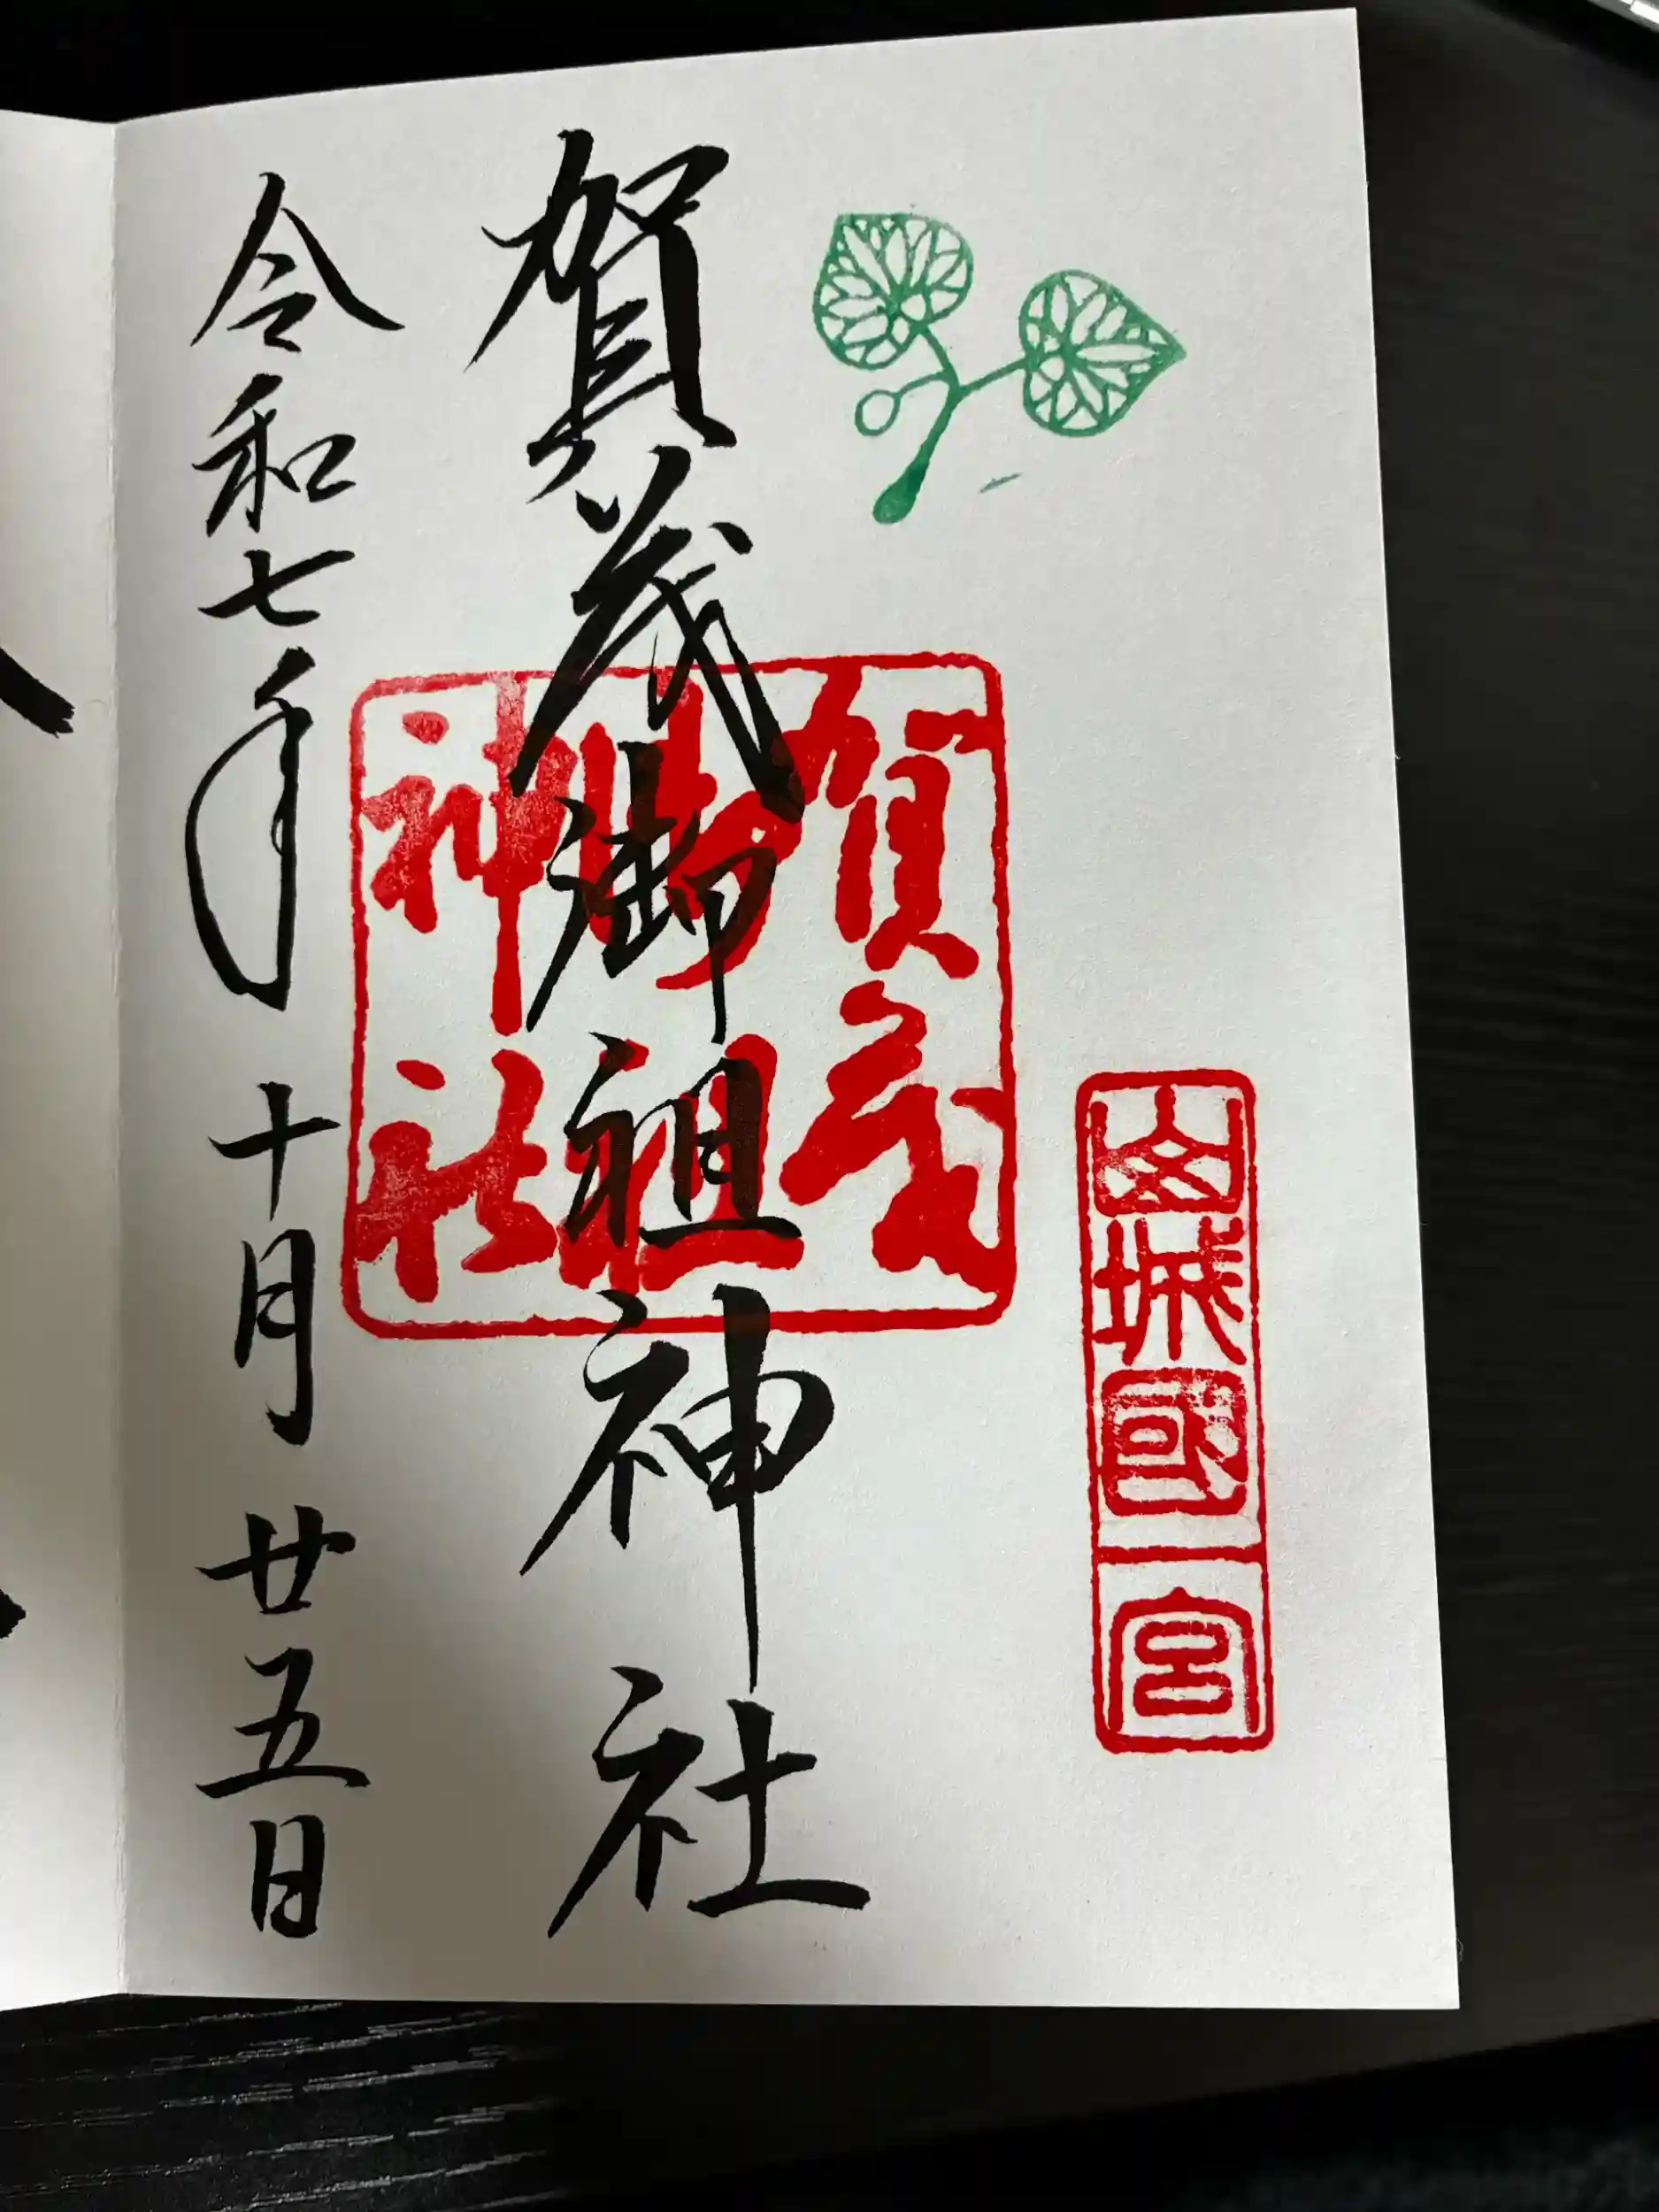 山城國一宮
賀茂御祖神社
賀茂
御祖
神社
令和七年十月廿五日